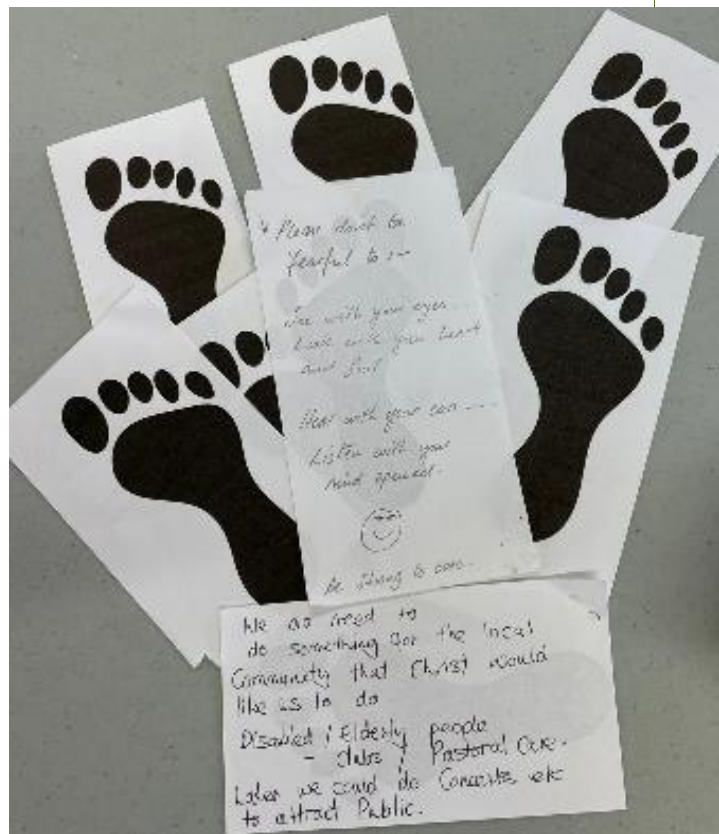 * Please don't be
fearful to :-
See with your eyes....
Look with your heart
and feel
Hear with your ears....
Listen with your
mind opened.
Be strong to care..
We do need to
do something for the local
Community that Christ would
like us to do
Disabled / Elderly people
- clubs / Pastoral Care.
Later we could do Concerts etc
to attract Public.